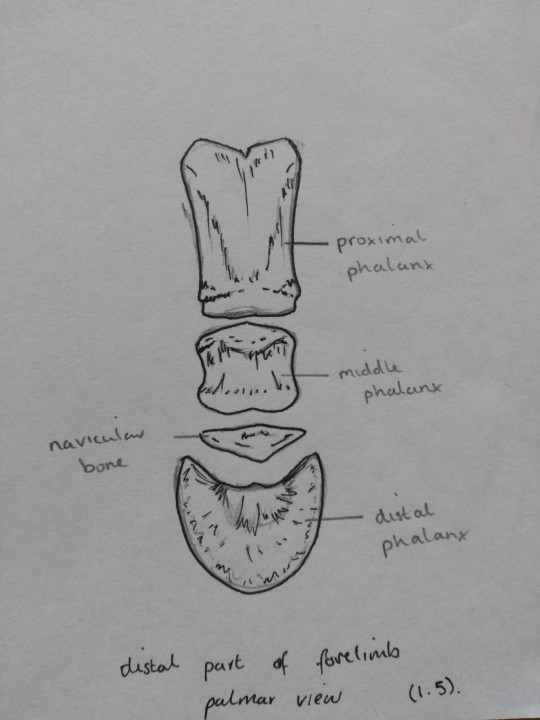 proximal
phalanx
middle
phalanx
navicular
bone
distal
phalanx
distal part of forelimb
palmar view (1.5).